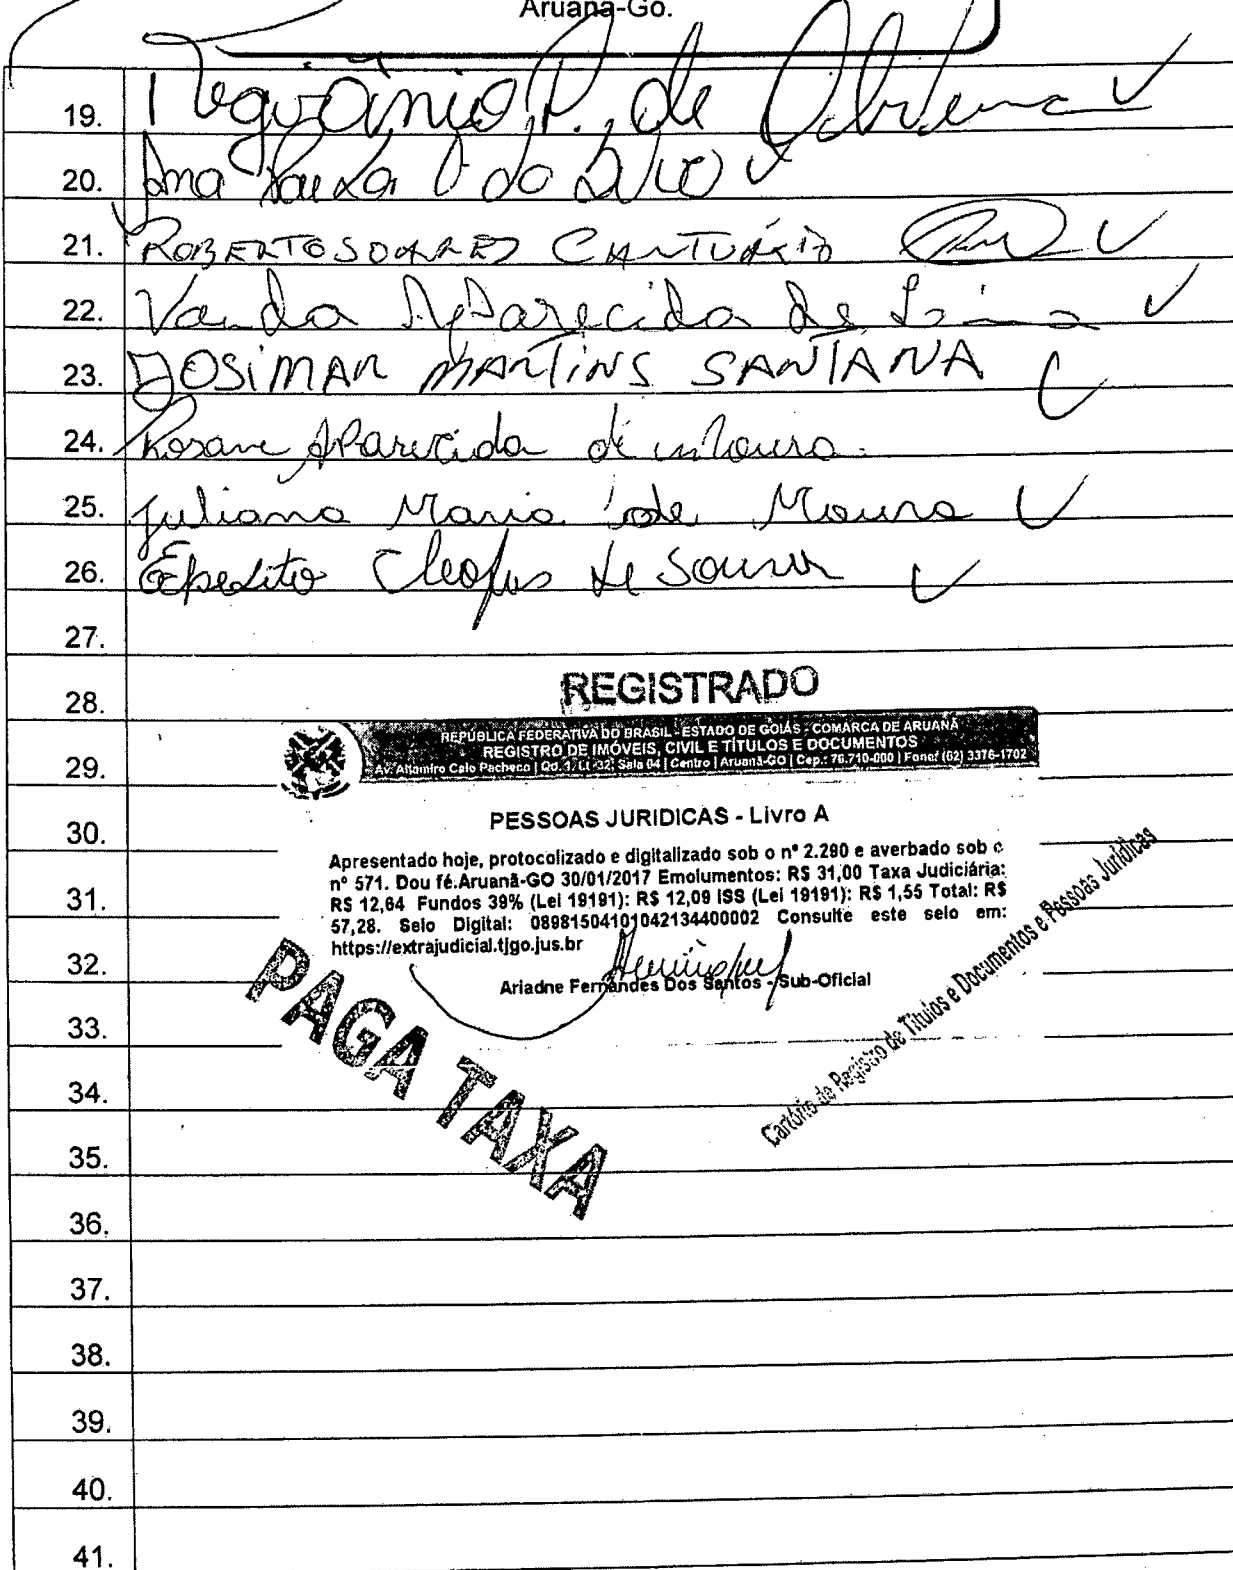 Aruanã-Go.
19. P. de
20. Ana Paula
21. ROBERTO SOARES CANTUÁRIO
22. Vanda Aparecida de Lima
23. JOSIMAR MARTINS SANTANA
24. Rosane Aparecida de
25. Juliana Maria de Moura
26. Cleofas de Souza
27.
28. REGISTRADO
REPÚBLICA FEDERATIVA DO BRASIL - ESTADO DE GOIÁS - COMARCA DE ARUANÃ
REGISTRO DE IMÓVEIS, CIVIL E TÍTULOS E DOCUMENTOS
29. Av. Altamiro Caio Pacheco | Qd. 1, Lt. 32, Sala 04 | Centro | Aruanã-GO | Cep.: 76.710-000 | Fone: (62) 3376-1702
PESSOAS JURIDICAS - Livro A
30.
Apresentado hoje, protocolizado e digitalizado sob o nº 2.290 e averbado sob o
nº 571. Dou fé.Aruanã-GO 30/01/2017 Emolumentos: R$ 31,00 Taxa Judiciária:
31. R$ 12,64 Fundos 39% (Lei 19191): R$ 12,09 ISS (Lei 19191): R$ 1,55 Total: R$
57,28. Selo Digital: 08981504101042134400002 Consulte este selo em:
https://extrajudicial.tjgo.jus.br
32.
Ariadne Fernandes Dos Santos - Sub-Oficial
Cartório de Registro de Títulos e Documentos e Pessoas Jurídicas
PAGA TAXA
33.
34.
35.
36.
37.
38.
39.
40.
41.